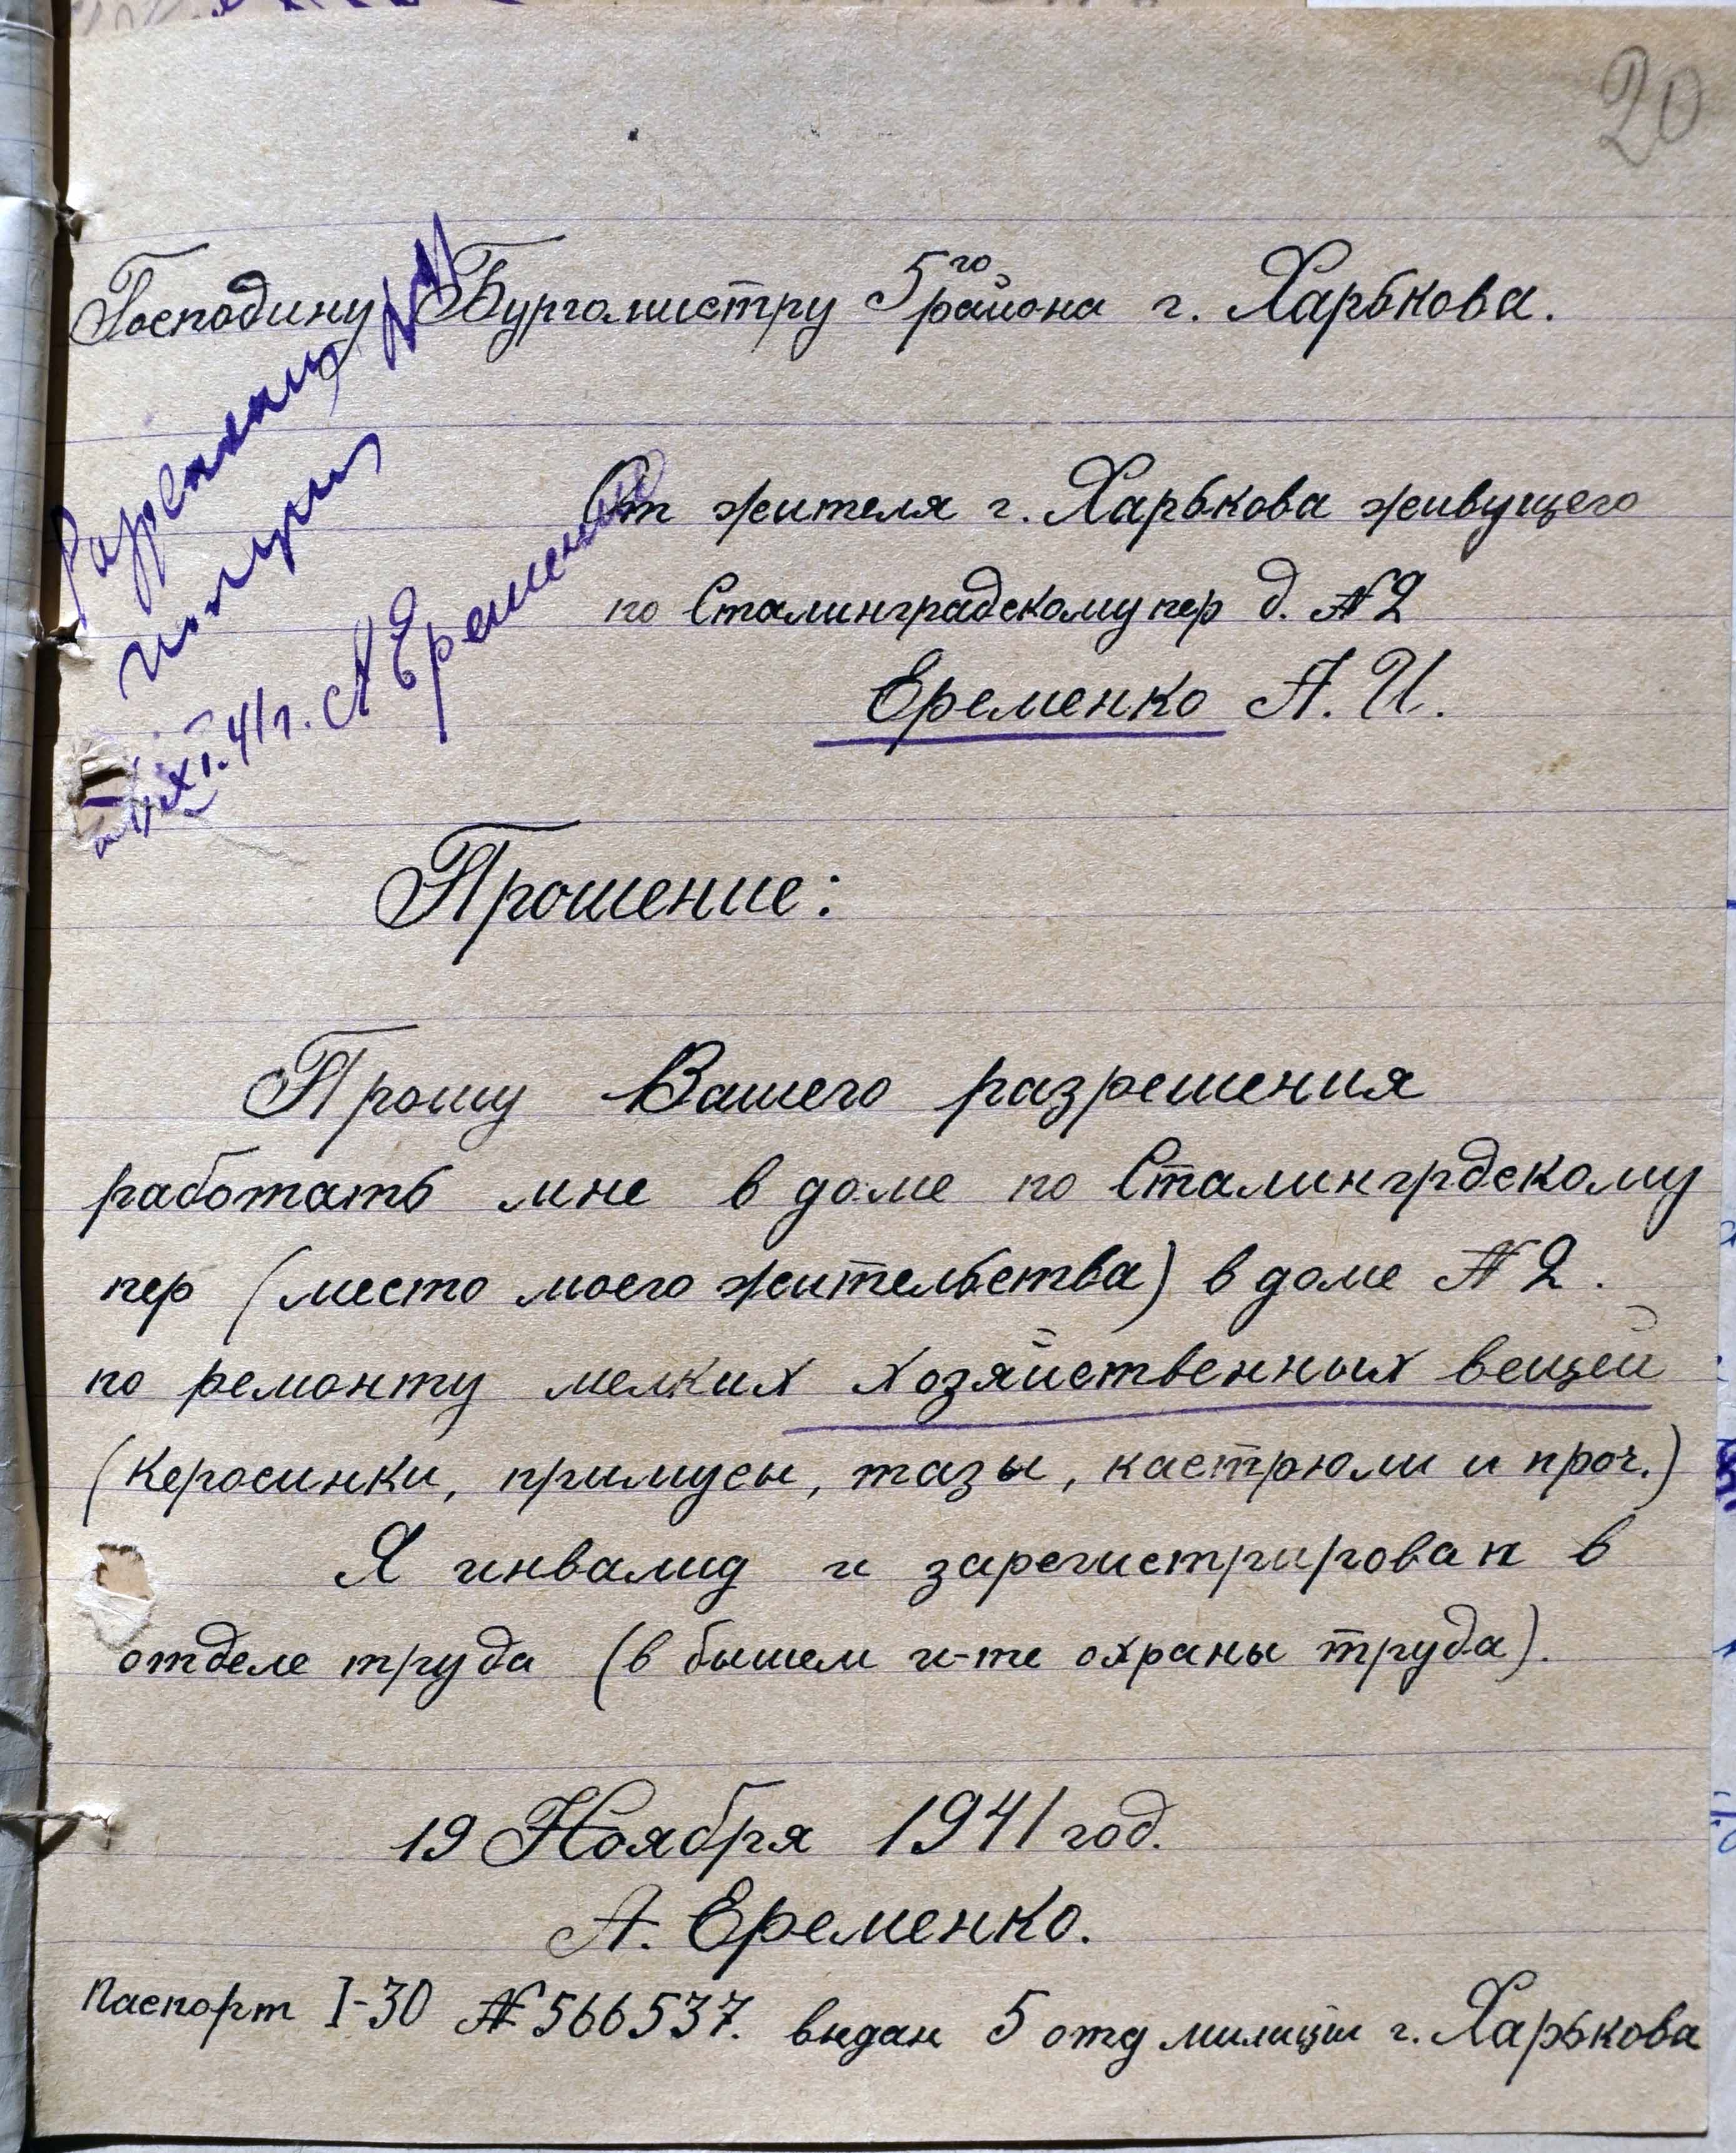 20
Господину Бургомистру 5го района г. Харькова.
Разрешение №11
получил
XI. 41 г. А Еременко
От жителя г. Харькова живущего
по Сталинградскому пер д. № 2
Еременко А. И.
Прошение:
Прошу Вашего разрешения
работать мне в доме по Сталингрдскому
пер (место моего жительства) в доме № 2.
по ремонту мелких хозяйственных вещей
(керосинки, примусы, тазы, кастрюли и проч.)
Я инвалид и зарегистрирован в
отделе труда (в бышем и-те охраны труда).
19 Ноября 1941 год.
А. Еременко.
Паспорт I-30 № 566537. выдан 5 отд милиции г. Харькова